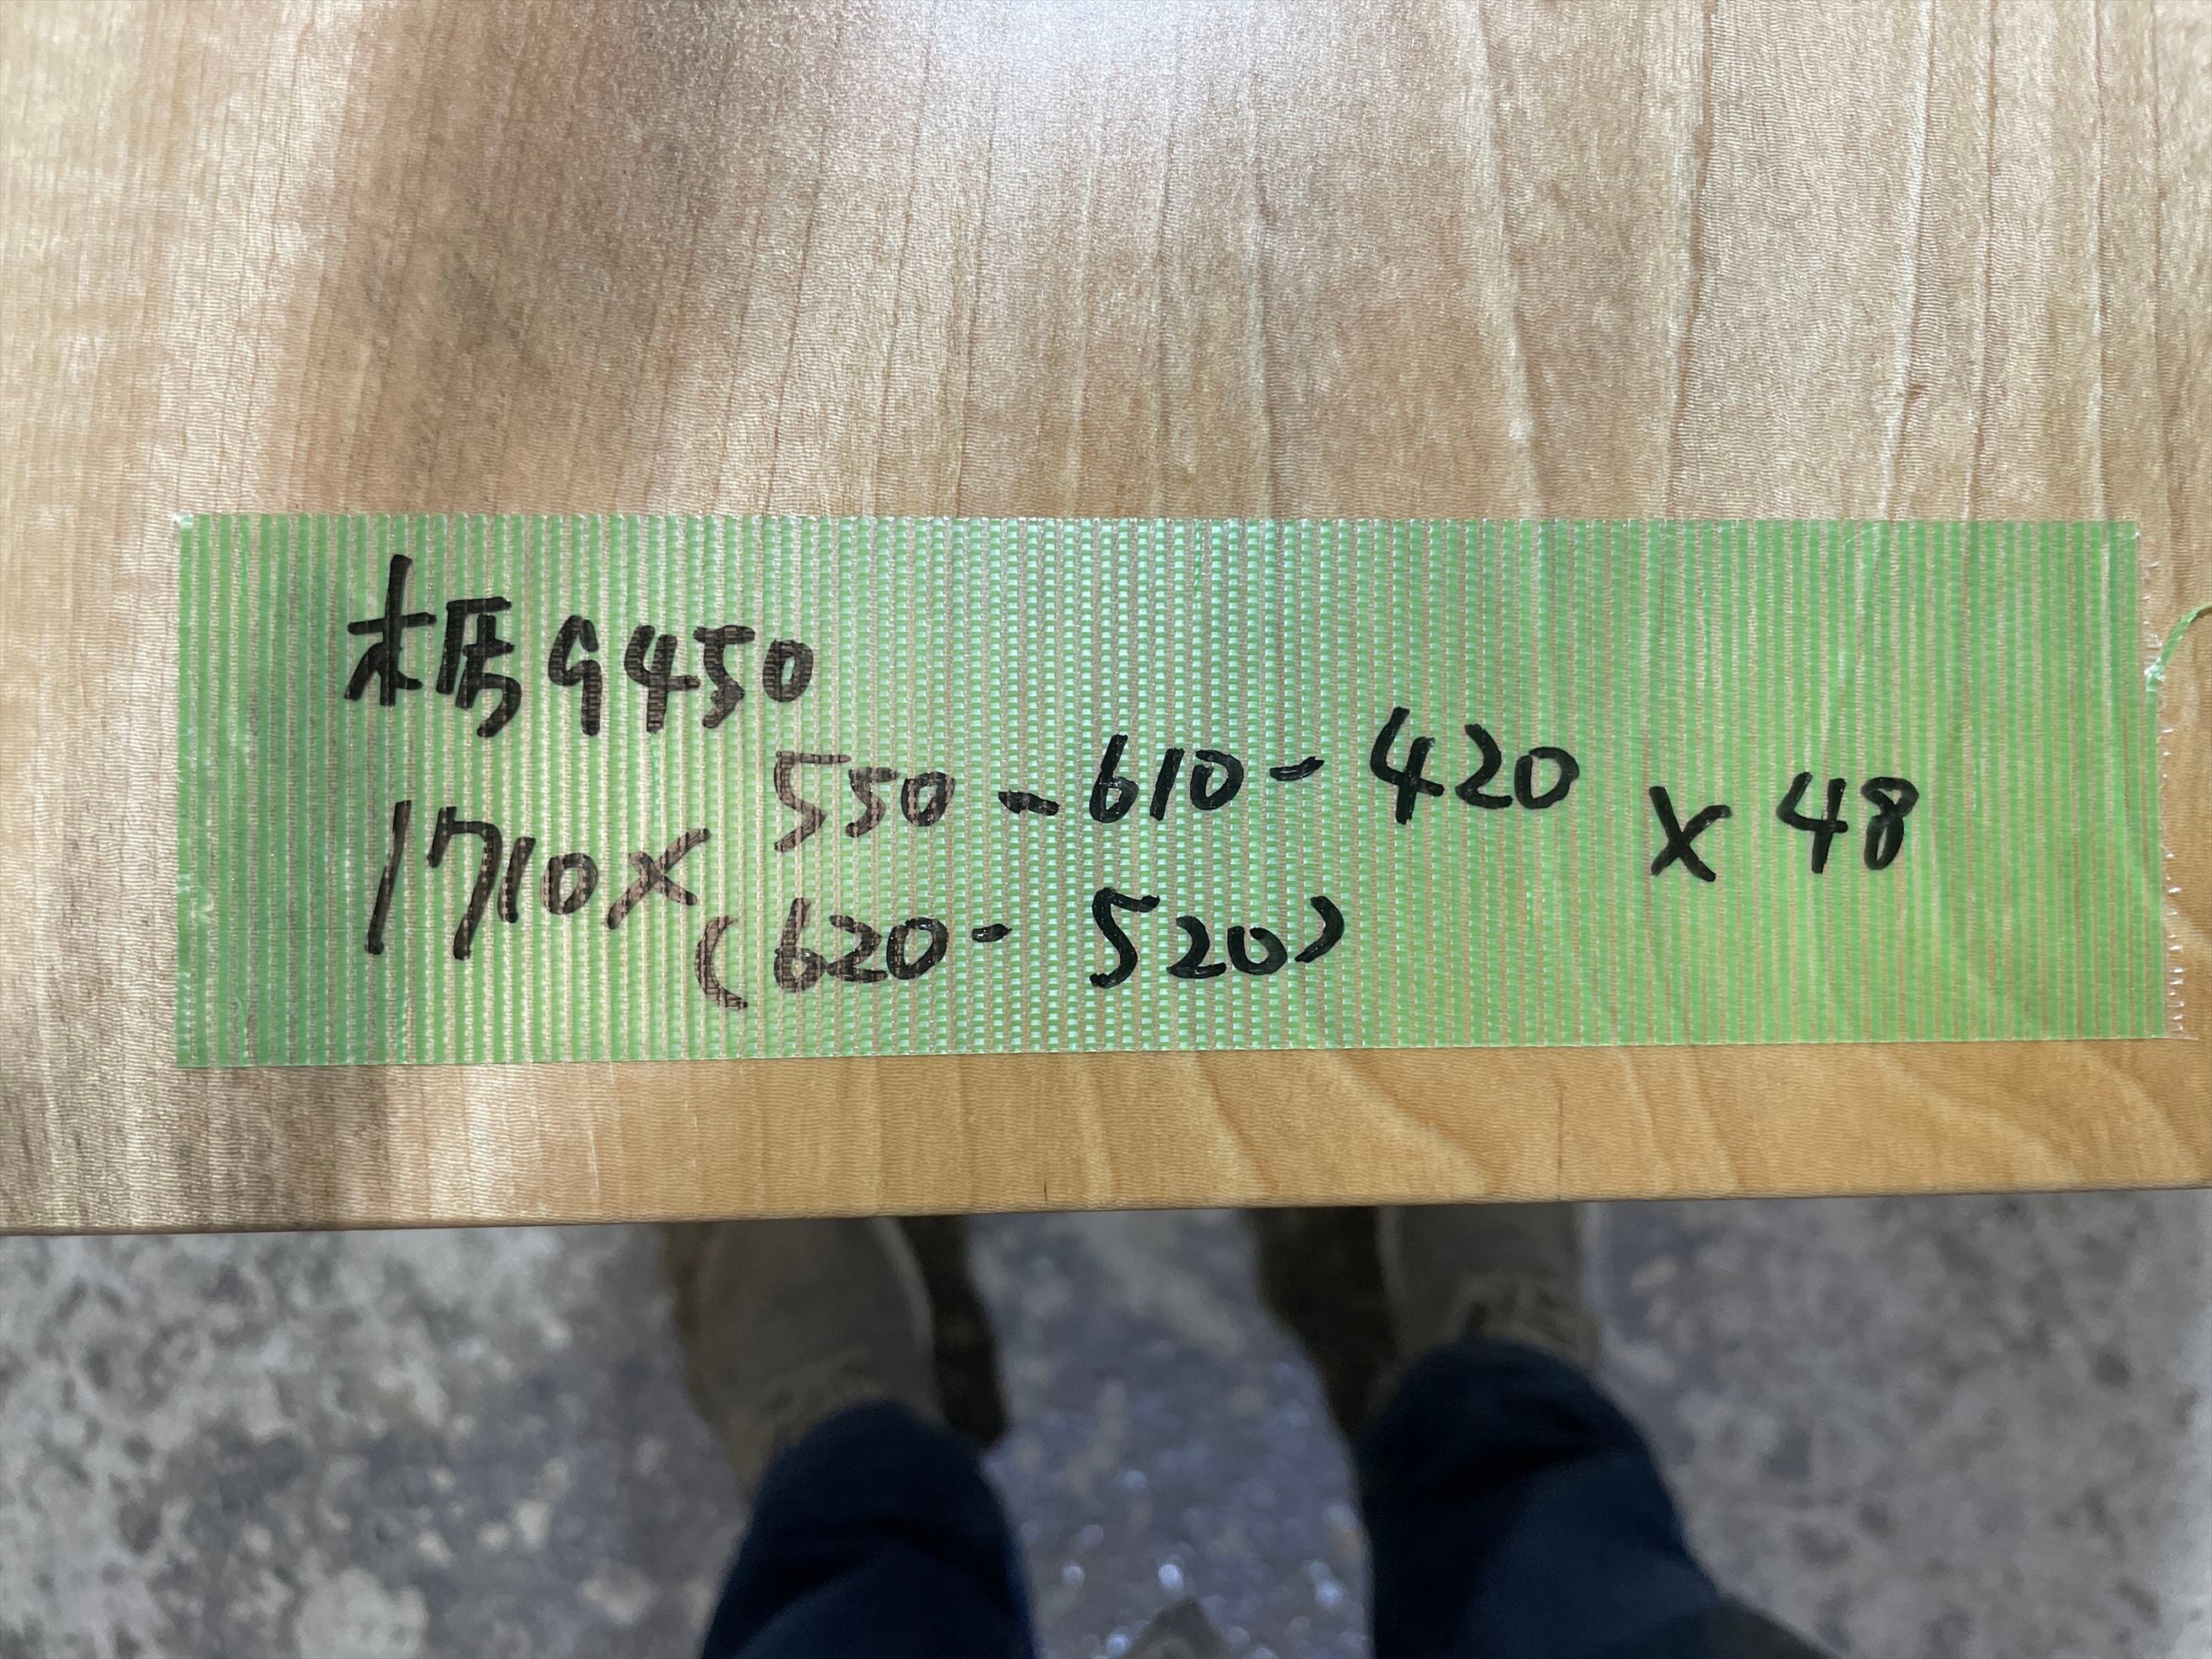 栃9450
1710× 550-610-420 ×48
(620-520)